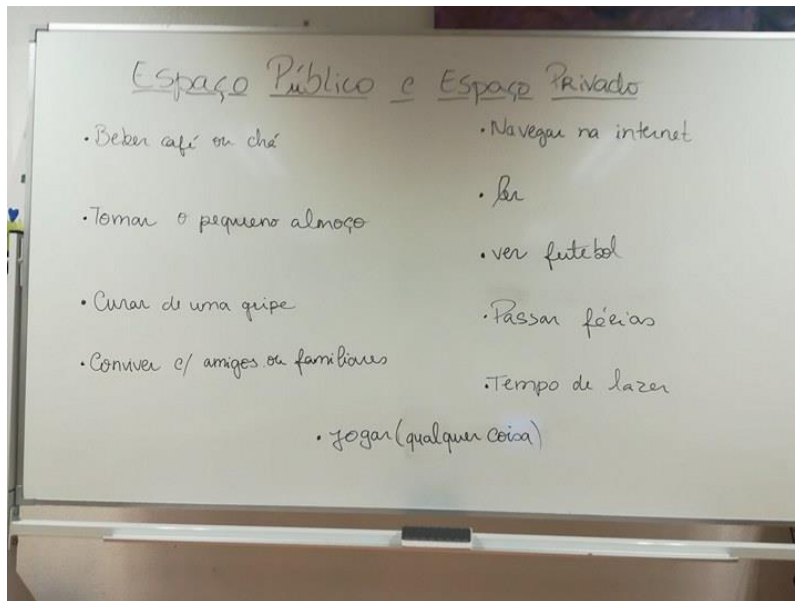 Espaço Público e Espaço Privado
• Beber café ou chá
• Tomar o pequeno almoço
• Curar de uma gripe
• Conviver c/ amigos ou familiares
• Navegar na internet
• ler
• ver futebol
• Passar férias
• Tempo de lazer
• jogar (qualquer coisa)